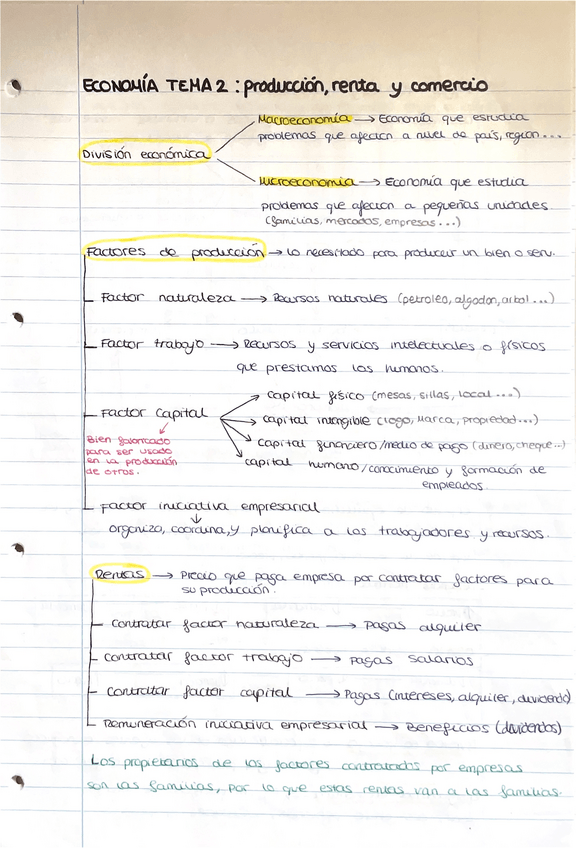 ECONOMÍA TEMA 2: producción, renta y comercio
Macroeconomía → Economía que estudia
problemas que afectan a nivel de país, región...
División económica
Microeconomía → Economía que estudia
problemas que afectan a pequeñas unidades
(familias, mercados, empresas...)
Factores de producción → lo necesitado para producir un bien o serv.
Factor naturaleza → Recursos naturales (petroleo, algodon, arbol...)
Factor trabajo → Recursos y servicios intelectuales o físicos
que prestamos los humanos.
capital físico (mesas, sillas, local...)
Factor capital
capital intangible (logo, marca, propiedad...)
Bien fabricado
para ser usado
en la producción
de otros.
capital financiero/medio de pago (dinero, cheque..)
capital humano/conocimiento y formación de
empleados.
Factor iniciativa empresarial
organiza, coordina, y planifica a los trabajadores y recursos.
Rentas → Precio que paga empresa por contratar factores para
su producción.
Contratar factor naturaleza → Pagas alquiler
Contratar factor trabajo → Pagas salarios
Contratar factor capital → Pagas (intereses, alquiler, dividendo)
Remuneración iniciativa empresarial → Beneficios (dividendos)
Los propietarios de los factores contratados por empresas
son las familias, por lo que estas rentas van a las familias.